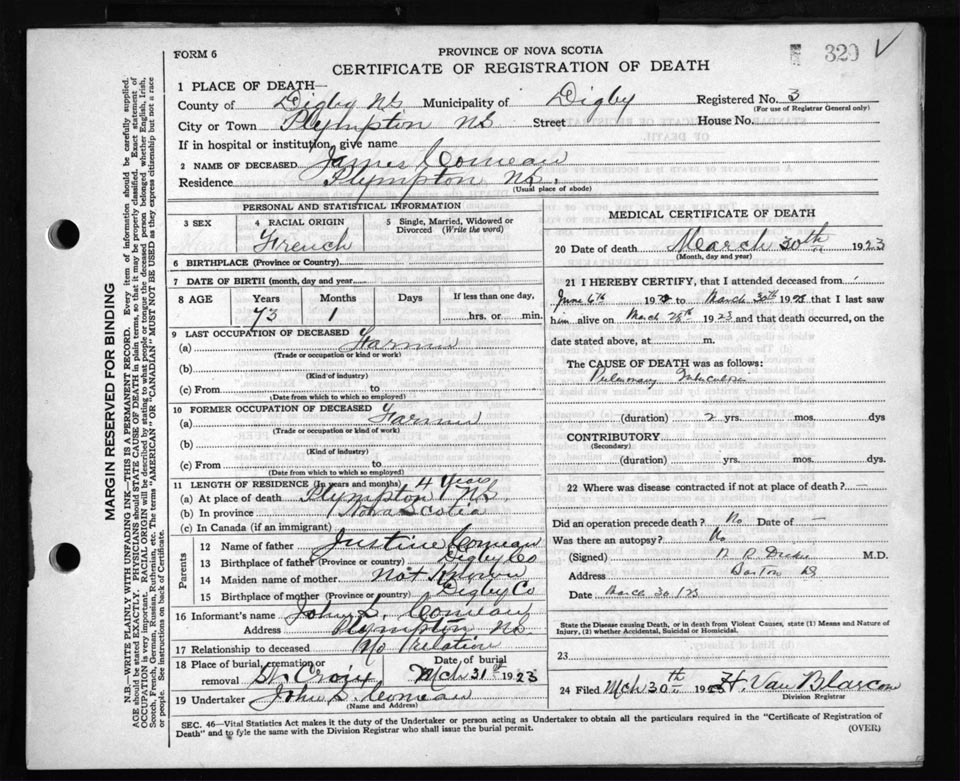 PROVINCE OF NOVA SCOTIA
320
FORM 6
CERTIFICATE OF REGISTRATION OF DEATH
1 PLACE OF DEATH—
County of Digby NS Municipality of Digby Registered No. 3
(For use of Registrar General only)
City or Town Plympton NS Street House No.
If in hospital or institution, give name
2 NAME OF DECEASED James Comeau
Residence Plympton NS.
(Usual place of abode)
PERSONAL AND STATISTICAL INFORMATION
3 SEX
4 RACIAL ORIGIN
French
5 Single, Married, Widowed or Divorced (Write the word)
6 BIRTHPLACE (Province or Country)
7 DATE OF BIRTH (month, day and year)
8 AGE Years Months Days If less than one day,
73 1 hrs. or min.
9 LAST OCCUPATION OF DECEASED
(a) Farmer
(Trade or occupation or kind or work)
(b)
(Kind of industry)
(c) From to
(Date from which to which so employed)
10 FORMER OCCUPATION OF DECEASED
(a) Farmer
(Trade or occupation or kind of work)
(b)
(Kind of industry)
(c) From to
(Date from which to which so employed)
11 LENGTH OF RESIDENCE (In years and months) 4 Years
(a) At place of death Plympton NS.
(b) In province Nova Scotia
(c) In Canada (if an immigrant)
Parents
12 Name of father Justine Comeau
13 Birthplace of father (Province or country) Digby Co
14 Maiden name of mother Not Known
15 Birthplace of mother (Province or country) Digby Co
16 Informant's name John S. Comeau
Address Plympton NS
17 Relationship to deceased No Relation
18 Place of burial, cremation or removal St. Croix Date of burial Mch 31st 1923
19 Undertaker John S. Comeau
(Name and Address)
MEDICAL CERTIFICATE OF DEATH
20 Date of death March 30th 1923
(Month, day and year)
21 I HEREBY CERTIFY, that I attended deceased from
June 6th 19 to March 30th 19 that I last saw
him alive on March 28th 1923 and that death occurred, on the
date stated above, at m.
The CAUSE OF DEATH was as follows:
Pulmonary Tuberculosis
(duration) 2 yrs. mos. dys
CONTRIBUTORY
(Secondary)
(duration) yrs. mos. dys.
22 Where was disease contracted if not at place of death? —
Did an operation precede death? No Date of —
Was there an autopsy? No
(Signed) M.D.
Address Barton
Date March 30/23
State the Disease causing Death, or in death from Violent Causes, state (1) Means and Nature of Injury, (2) whether Accidental, Suicidal or Homicidal.
23
24 Filed Mch 30th 19 H. Van Blarcom
Division Registrar
SEC. 46—Vital Statistics Act makes it the duty of the Undertaker or person acting as Undertaker to obtain all the particulars required in the "Certificate of Registration of
Death" and to fyle the same with the Division Registrar who shall issue the burial permit.
(OVER)
MARGIN RESERVED FOR BINDING
N.B.—WRITE PLAINLY WITH UNFADING INK—THIS IS A PERMANENT RECORD. Every item of information should be carefully supplied.
AGE should be stated EXACTLY. PHYSICIANS should STATE CAUSE OF DEATH in plain terms, so that it may be properly classified. Exact statement of
OCCUPATION is very important. RACIAL ORIGIN will be described by stating to what people or tongue the deceased person belonged, whether English, Irish,
Scotch, French, German, Russian, Ruthenian, etc. The terms "AMERICAN" or "CANADIAN" MUST NOT BE USED as they express citizenship but not a race
or people. See instructions on back of Certificate.